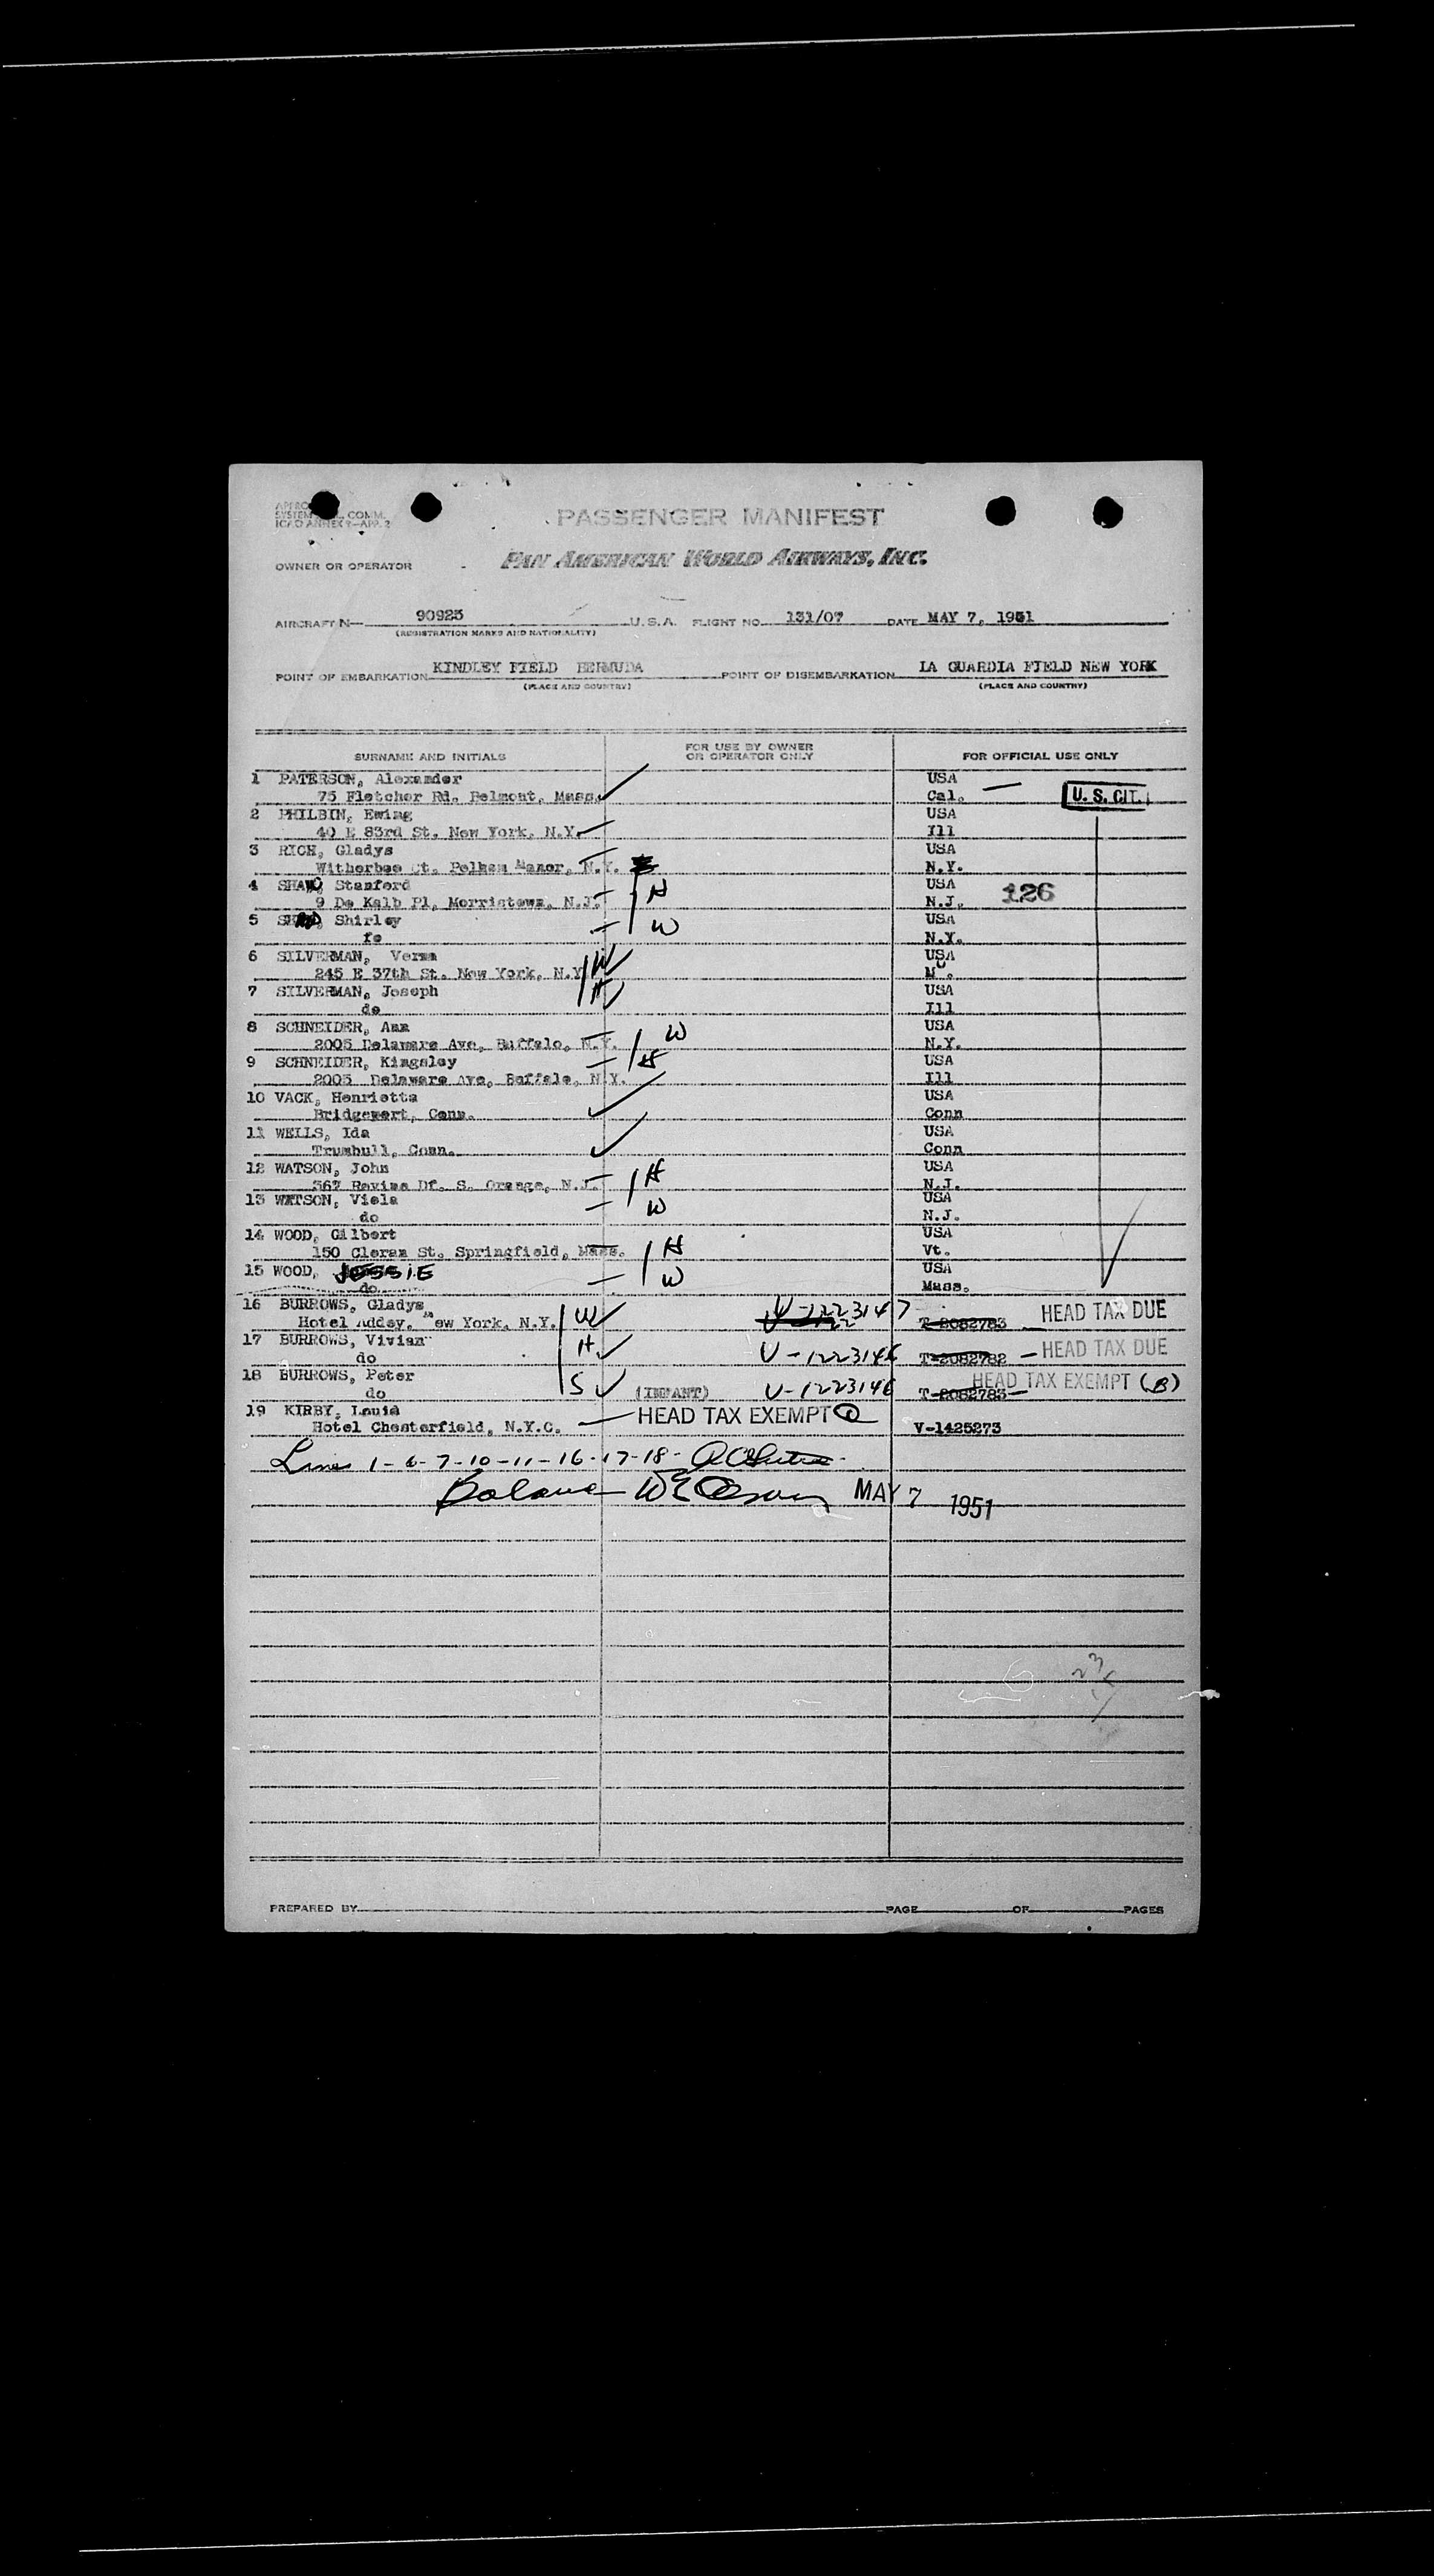 PASSENGER MANIFEST
SYSTEM COMM.
ICAO ANNEX 9—APP. 2
OWNER OR OPERATOR PAN AMERICAN WORLD AIRWAYS, INC.
AIRCRAFT N— 90923 U.S.A. FLIGHT NO. 131/07 DATE MAY 7, 1951
(REGISTRATION MARKS AND NATIONALITY)
POINT OF EMBARKATION KINDLEY FIELD BERMUDA POINT OF DISEMBARKATION LA GUARDIA FIELD NEW YORK
(PLACE AND COUNTRY) (PLACE AND COUNTRY)
SURNAME AND INITIALS FOR USE BY OWNER OR OPERATOR ONLY FOR OFFICIAL USE ONLY
1 PATERSON, Alexander USA
75 Fletcher Rd. Belmont, Mass. Cal. — U. S. CIT.
2 PHILBIN, Ewing USA
40 E 83rd St. New York, N.Y. Ill
3 RICH, Gladys USA
Witherbee Pelham Manor, N.Y. N.Y.
4 Stanford H USA 126
9 De Kalb Pl, Morristown, N.J. N.J.
5 Shirley W USA
N.Y.
6 SILVERMAN, Verna W USA
245 E 37th St. New York, N.Y
7 SILVERMAN, Joseph H USA
do Ill
8 SCHNEIDER, Ann W USA
2005 Delaware Ave, Buffalo, N.Y. N.Y.
9 SCHNEIDER, Kingsley H USA
2005 Delaware Ave, Buffalo, N.Y. Ill
10 VACK, Henrietta USA
Conn. Conn
11 WELLS, Ida USA
Trumbull, Conn. Conn
12 WATSON, John H USA
Ravine S. Orange, N.J. N.J.
13 WATSON, Viola W USA
do N.J.
14 WOOD, Gilbert H USA
150 St. Springfield, Mass. Vt.
15 WOOD, JESSIE W USA
do Mass.
16 BURROWS, Gladys W U-1223147 HEAD TAX DUE
Hotel New York, N.Y. T-2082783
17 BURROWS, Vivian H U-1223146 HEAD TAX DUE
do T-2082782
18 BURROWS, Peter S U-1223146 HEAD TAX EXEMPT (B)
do (INFANT) T-2082783
19 KIRBY, Louis HEAD TAX EXEMPT
Hotel Chesterfield, N.Y.C. V-1425273
Lines 1-6-7-10-11-16-17-18-
Balance MAY 7 1951
PREPARED BY PAGE OF PAGES